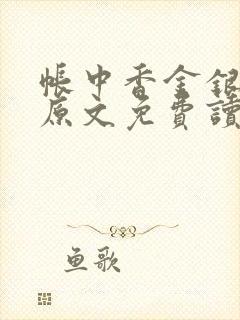 帳中香金銀
原文免費讀
鱼歌